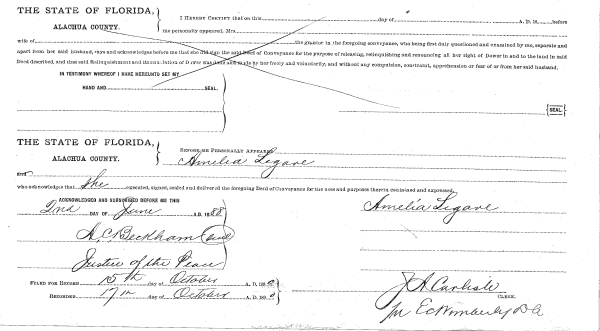 THE STATE OF FLORIDA,
ALACHUA COUNTY.
I HEREBY CERTIFY that on this day of A. D. 18 before
me personally appeared, Mrs.
wife of the grantor in the foregoing conveyance, who being first duly questioned and examined by me, separate and
apart from her said husband, says and acknowledges before me that she did sign the said Deed of Conveyance for the purpose of releasing, relinquishing and renouncing all her right of Dower in and to the land in said
Deed described, and that said Relinquishment and Renunciation of Dower was done and made by her freely and voluntarily, and without any compulsion, constraint, apprehension or fear of or from her said husband.
IN TESTIMONY WHEREOF I HAVE HEREUNTO SET MY
HAND AND SEAL
SEAL
THE STATE OF FLORIDA,
ALACHUA COUNTY.
BEFORE ME PERSONALLY APPEARED
Amelia Legare
and
who acknowledges that she executed, signed, sealed and delivered the foregoing Deed of Conveyance for the uses and purposes therein contained and expressed.
ACKNOWLEDGED AND SUBSCRIBED BEFORE ME THIS
22nd DAY OF June A.D. 1888
Amelia Legare
A, C, Beckham Seal
Justice of the Peace
FILED FOR RECORD 15th day of October A. D. 18
RECORDED 17th day of October A. D. 18
J A Carlisle
CLERK.
per